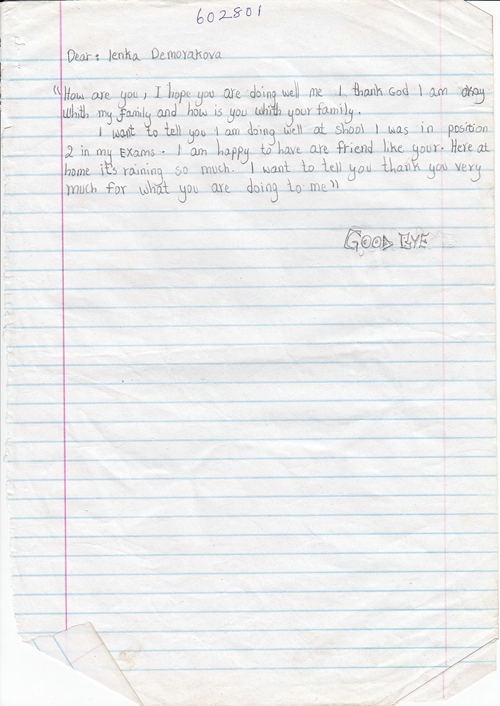 602801
Dear: lenka Demorakova
"How are you, I hope you are doing well me I thank God I am okay
whith my family and how is you whith your family.
I want to tell you I am doing well at shool I was in position
2 in my Exams. I am happy to have are friend like your. Here at
home it's raining so much. I want to tell you thank you very
much for what you are doing to me"
GOOD BYE